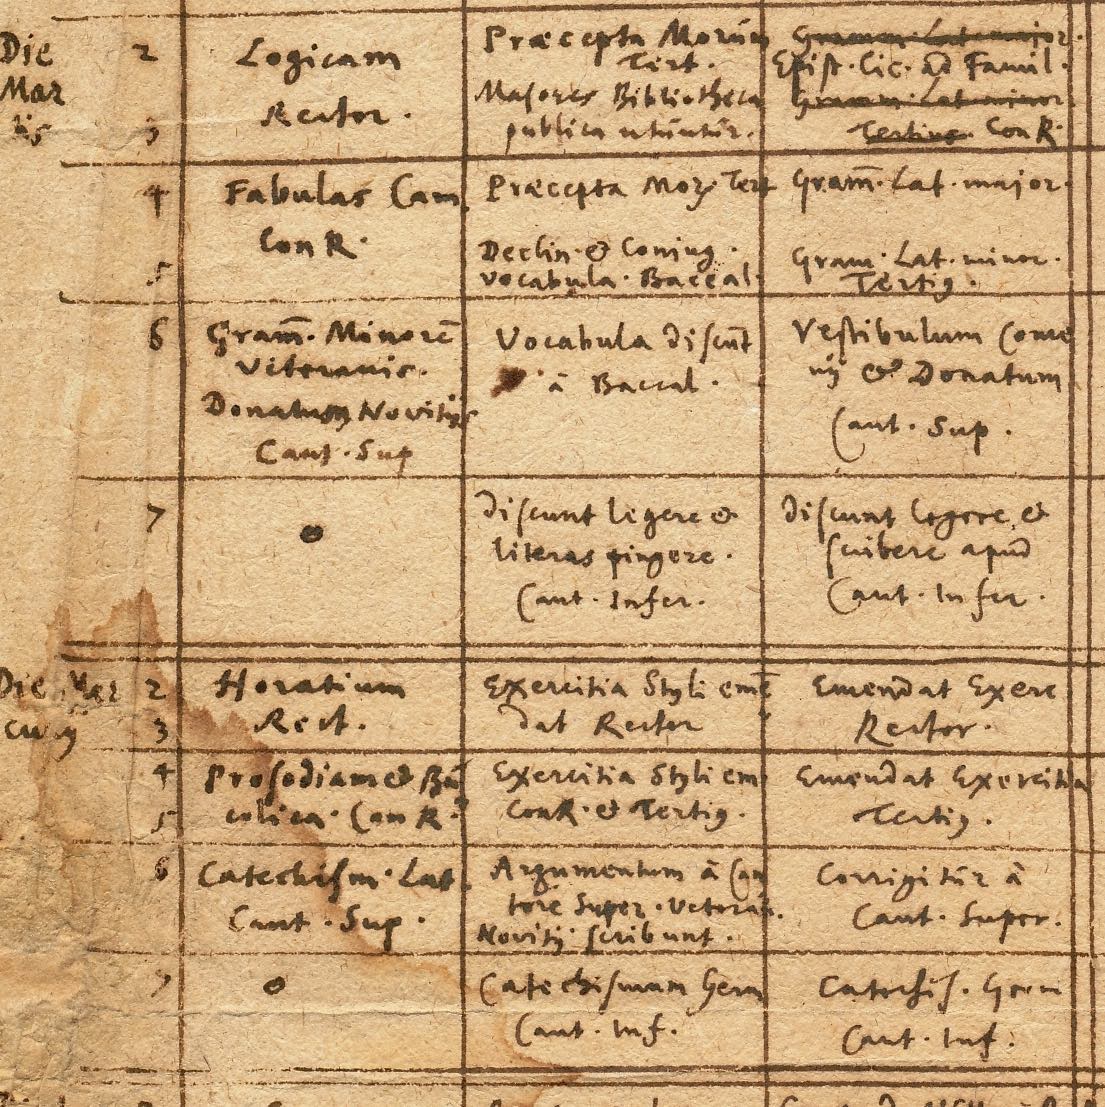 Die
Mar
tis
2
3
Logicam
Rector.
Præcepta Morūm
Tert.
Majores Bibliotheca
publica utūntūr.
Gramm. Lat. major.
Epist. Cic. ad Famil.
Gramm. Lat. minor.
Tertius. ConR.
4
5
Fabulas Cam.
ConR.
Præcepta Moꝝ Tert
Declin. & Coniug.
Vocabula. Baccal.
Gram̄. Lat. major.
Gram. Lat. minor.
Tertiꝰ.
6
Gram̄. Minorē
Veteranis.
Donatum Novitijs
Cant. Sup
Vocabula discūt
à Baccal.
Vestibulum Come
nij & Donatum
Cant. Sup.
7
0
discunt legere &
literas pingere.
Cant. Infer.
discunt legere &
scribere apud
Cant. Infer.
Die Mer
curij
2
3
Horatium
Rect.
Exercitia Styli emē
dat Rector
Emendat Exerc
Rector.
4
5
Prosodiam & Bū
colica. ConR.
Exercitia Styli em
ConR. & Tertiꝰ.
Emendat Exercitia
Tertiꝰ.
6
Catechism. Lat.
Cant. Sup.
Argumentum à Can
tore Super. veteran.
Novitij scribunt.
Corrigitūr à
Cant. Super.
7
0
Catechismum Germ
Cant. Inf.
Catechis. Germ
Cant. Inf.